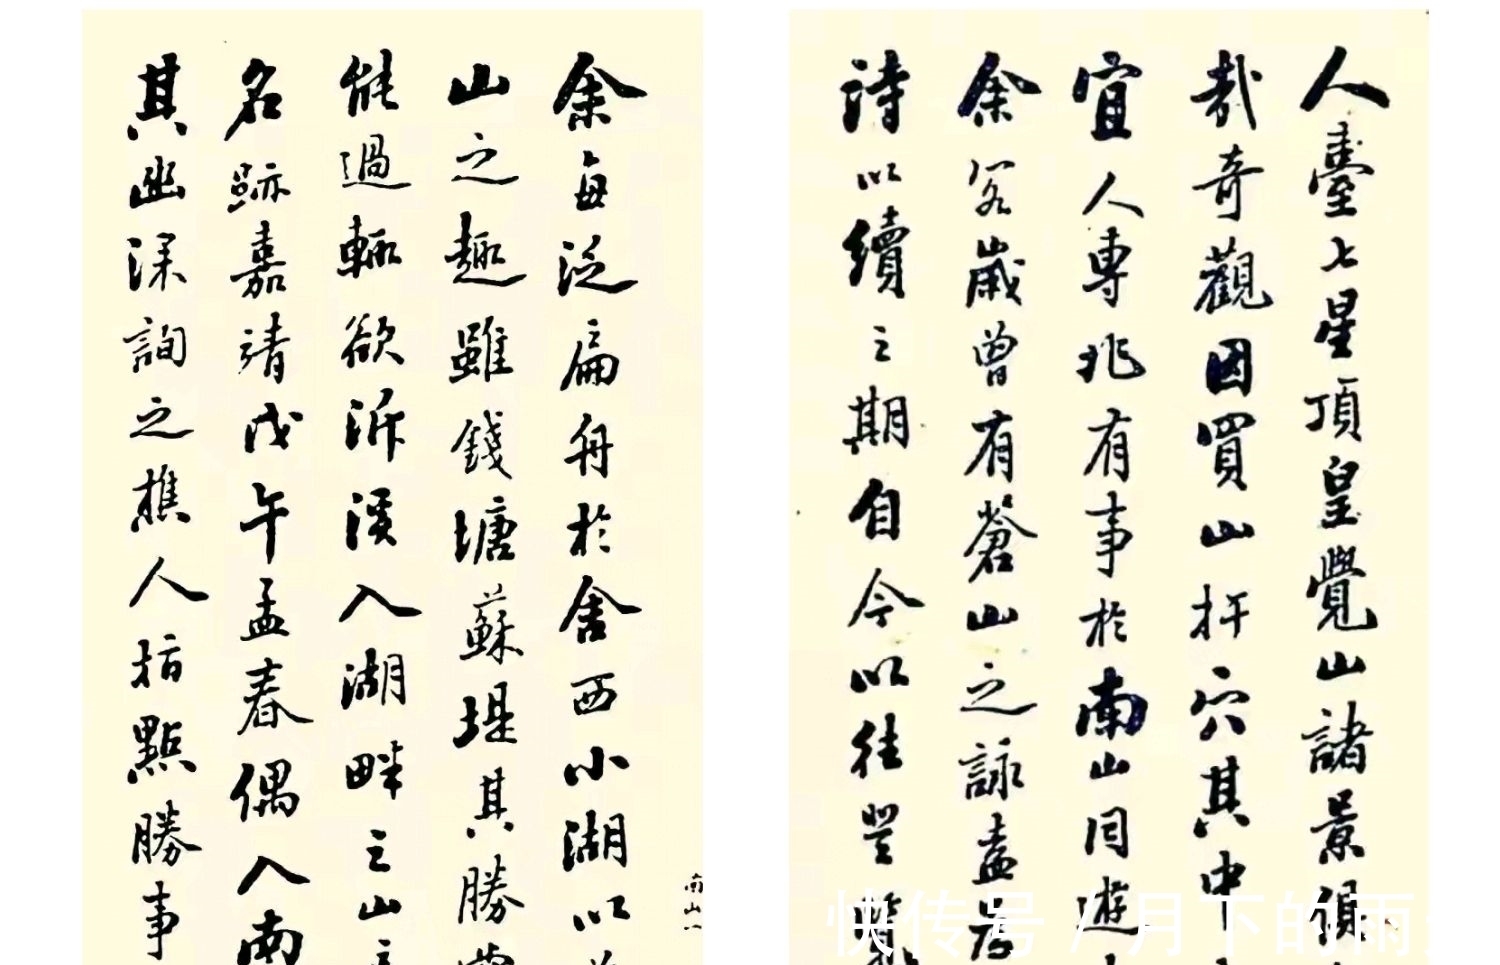 人臺七星頂皇覺山諸景領
哉奇觀因買山扦穴其中
宜人專兆有事於南山同遊
余客歲曾有蒼山之詠盍
詩以續之期自今以往
南山
余每泛扁舟於舍西小湖以
山之趣雖錢塘蘇堤其勝
能過輒欲泝溪入湖畔之山
名跡嘉靖戊午孟春偶入南
其幽深詢之樵人指點勝事
快传号/月下的雨